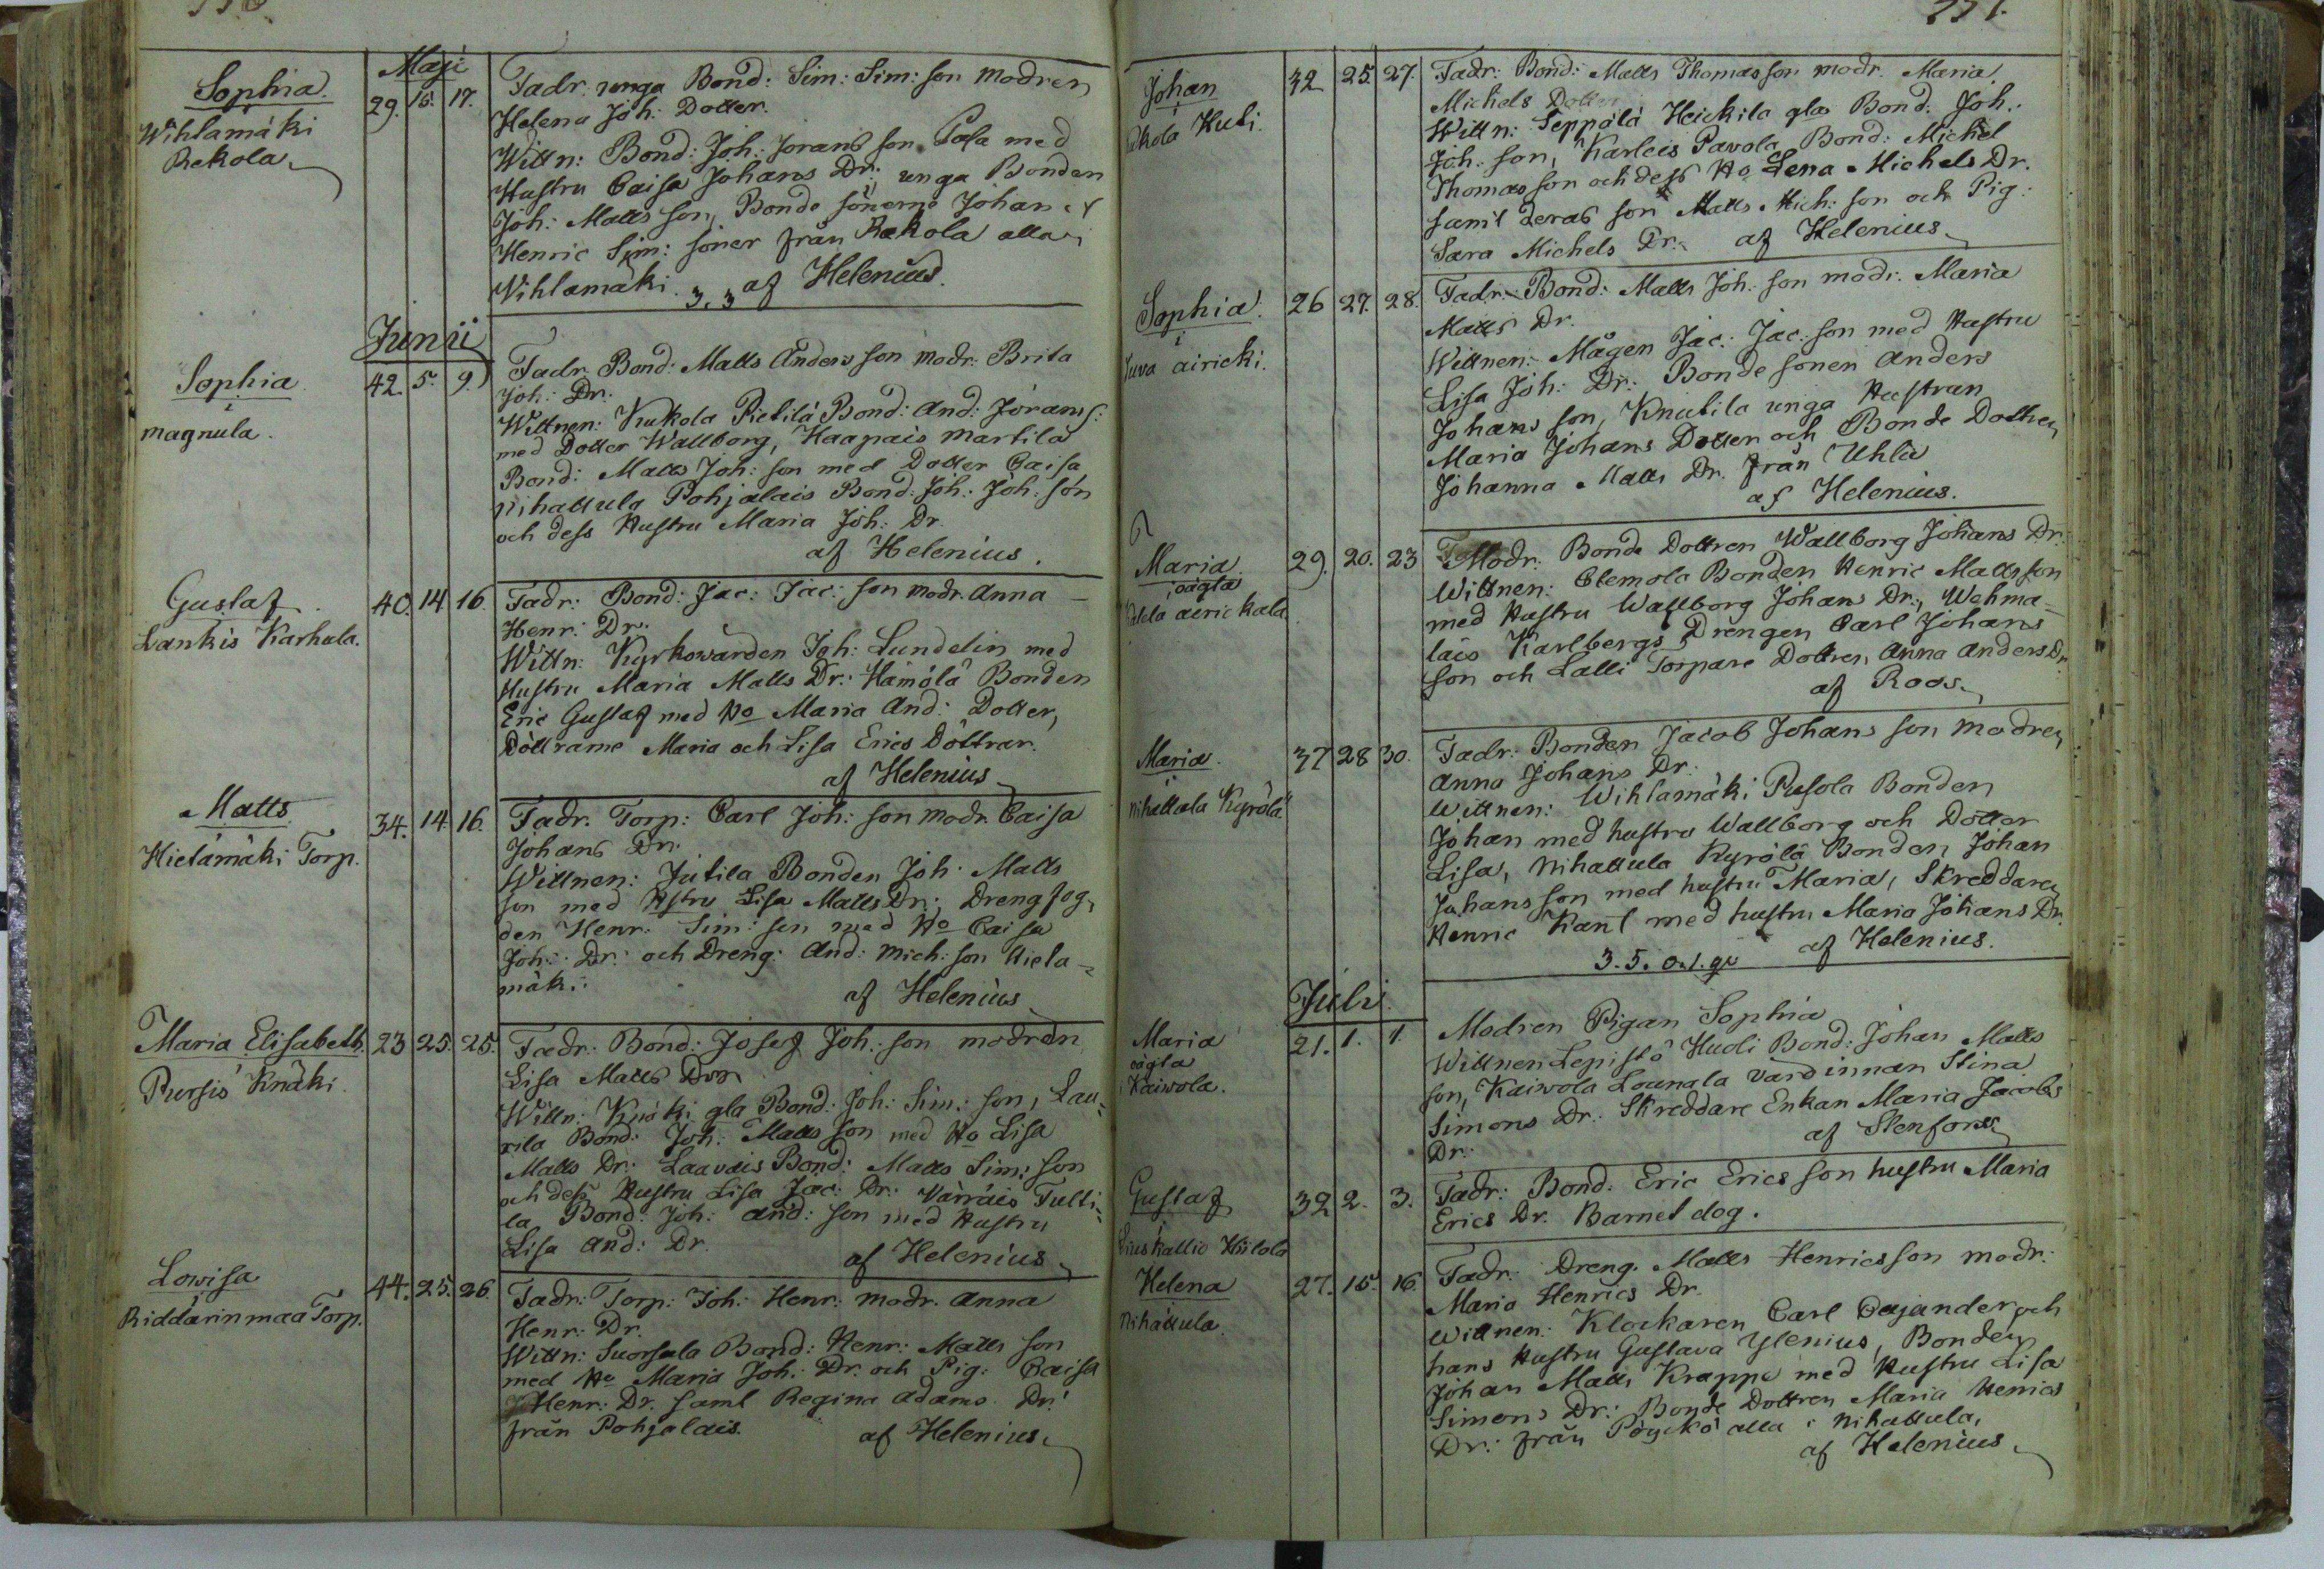 Maji
Sophia
i
Wihlamäki
Rekola
29. 15. 17.
Fadr. unga Bond: Sim: Sim: son modren
Helena Joh: Dotter.
Wittn: Bond: Joh: Jorans son Posa med
Hustru Caisa Johans Dr: unga Bonden
Joh: Matts son, Bonde sönerne Johan
Henric Sim: söner från Rekola alla i
Vihlamäki. 3. 3 af Helenius.
Junii
Sophia
i
magnula.
42. 5. 9.
Fadr. Bond: Matts Anders son modr: Brita
Joh: Dr:
Wittnen: Kukola Pietilä Bond: And: Jörans s:
med Dotter Wallborg, Haapais Martila
Bond: Matts Joh: son med Dotter Caisa
Nihattula Pohjalais Bond: Joh: Joh: son
och dess Hustru Maria Joh: Dr.
af Helenius.
Gustaf
Lankis Karhula.
40. 14. 16.
Fadr: Bond: Jac: Jac: son modr. Anna
Henr: Dr.
Wittn: Kyrkowärden Joh: Lundelin med
Hustru Maria Matts Dr: Hämölä Bonden
Eric Gustaf med Ho Maria And: Dotter,
Döttrarne Maria och Lisa Erics Döttrar.
af Helenius
Matts
Hietämäki Torp.
34. 14. 16.
Fadr. Torp: Carl Joh: son modr. Caisa
Johans Dr.
Wittnen: Jutila Bonden Joh: Matts
son med Hstru Lisa Matts Dr: Drengfog-
den Henr: Sim: son med Ho Caisa
Joh: Dr: och Dreng: And: Mich: son Hieta-
mäki.
af Helenius
Maria Elisabeth
Pursis Knäki.
23 25. 25.
Fadr. Bond: Josef Joh: son modren
Lisa Matts Dr
Wittn: Knäki gla Bond: Joh: Sim: son, Lau-
rila Bond: Joh: Matts son med Ho Lisa
Matts Dr: Laavais Bond: Matts Sim: son
och dess Hustru Lisa Jac: Dr: Värräis Tulti-
la Bond: Joh: And: son med Hustru
Lisa And: Dr.
af Helenius
Lowisa
Riddärinmaa Torp.
44. 25. 26.
Fadr: Torp: Joh: Henr: modr. Anna
Henr: Dr.
Wittn: Suorsula Bond: Henr: Matts son
med Ho Maria Joh: Dr. och Pig: Caisa
Henr: Dr. samt Regina Adams Dr:
från Pohjalais.
af Helenius
271.
Johan
i
Huti.
32 25. 27.
Fadr: Bond: Matts Thomas son modr. Maria
Michels Dotter
Wittn: Seppälä Heickila gla Bond: Joh:
Joh: son, Karleis Pavola Bond: Michel
Thomas son och dess Ho Lena Michels Dr.
samt deras son Matts Mich: son och Pig:
Sara Michels Dr: af Helenius
Sophia
i
Juva airicki.
26 27. 28.
Fadr: Bond: Matts Joh: son modr. Maria
Matts Dr.
Wittnen: Mågen Jac: Jac: son med Hustru
Lisa Joh: Dr: Bonde sonen Anders
Johans son, Knutila unga Hustrun
Maria Johans Dotter och Bonde Dottren
Johanna Matts Dr. från Uhlu
af Helenius.
Maria
oägta
29. 20. 23
Modr: Bonde Dottren Wallborg Johans Dr:
Wittnen: Clemola Bonden Henric Matts son
med Hustru Wallborg Johans Dr:, Wehma-
läis Karlbergs Drengen Carl Johans
son och Lalli Torpare Dottren Anna Anders Dr
af Roos
Maria
i
Nihattula Kyrölä
37 28 30.
Fadr: Bonden Jacob Johans son modren
Anna Johans Dr.
Wittnen: Wihlamäki Pusola Bonden
Johan med hustru Wallborg och Dotter
Lisa, Nihattula Kyrölä Bonden Johan
Johans son med hustru Maria, Skreddaren
Henric Kant med hustru Maria Johans Dr.
3. 5. af Helenius.
Juli
Maria
oägta
Kaiwola.
21. 1. 1.
Modren Pigan Sophia
Wittnen Lepistö Huoli Bond: Johan Matts
son, Kaiwola Lounala Värdinnan Stina
Simons Dr: Skreddare Enkan Maria Jacobs
Dr:
af Stenfors
Gustaf
i
Hiilola
32 2. 3.
Fadr: Bond: Eric Erics son hustru Maria
Erics Dr. Barnet dog.
Helena
Nihattula
27. 15. 16.
Fadr: Dreng. Matts Henrics son modr:
Maria Henrics Dr.
Wittnen: Klockaren Carl Cajander och
hans Hustru Gustava Ylenius, Bonden
Johan Matts Krappe med Hustru Lisa
Simons Dr: Bonde Dottren Maria Henrics
Dr: från Pöyckö alla i Nihattula,
af Helenius